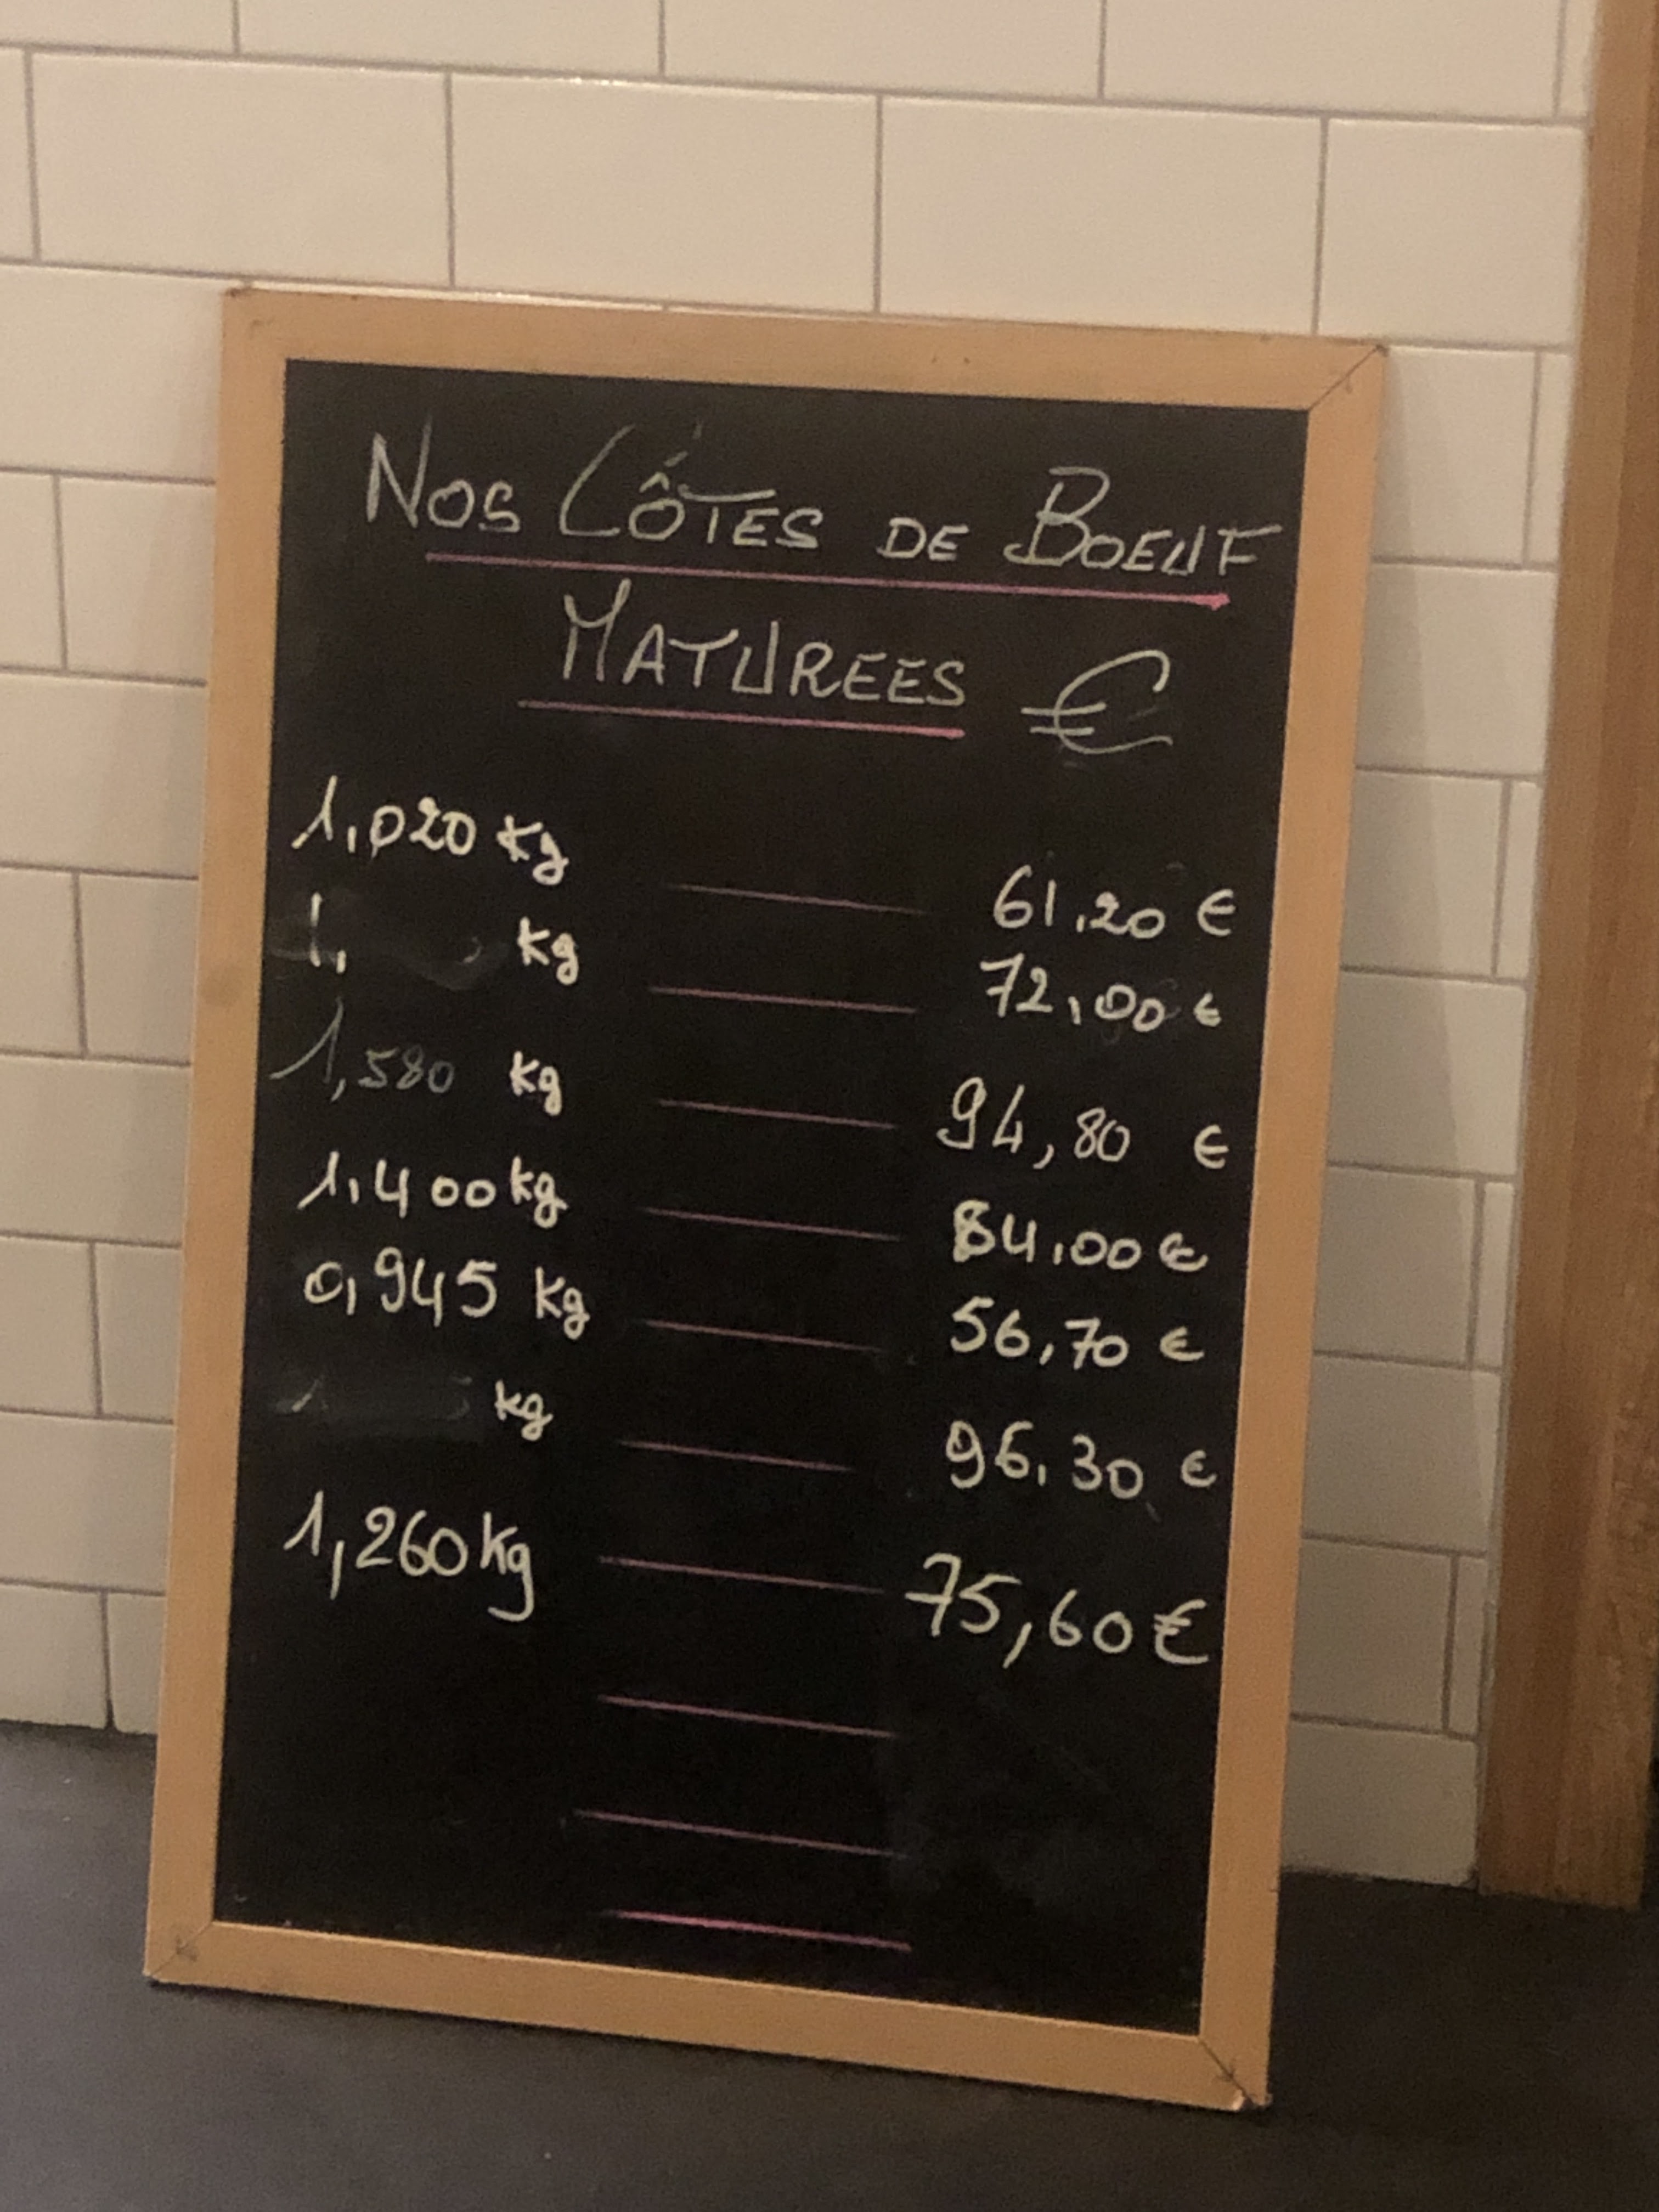 NOS CÔTES DE BOEUF
MATUREES €
1,020 Kg 61,20 €
1, kg 72,00 €
1,580 kg 94,80 €
1,400 kg 84,00 €
0,945 kg 56,70 €
kg 96,30 €
1,260 kg 75,60 €